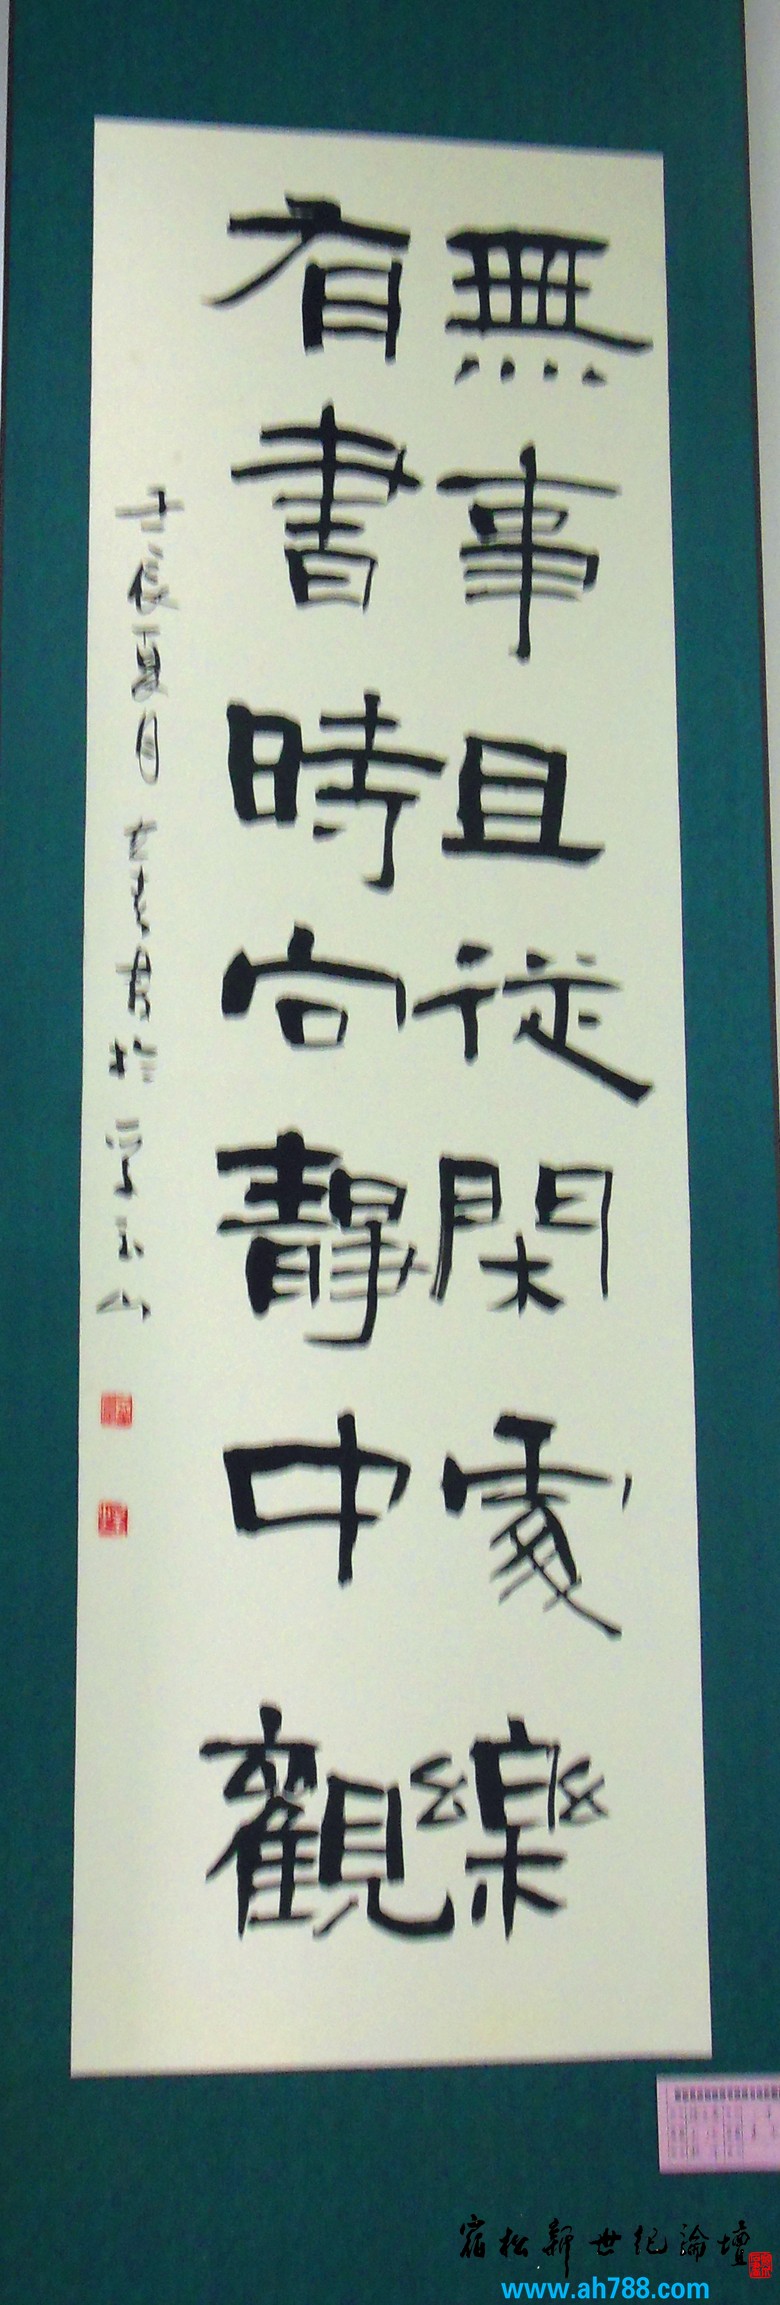 無事且從閑處樂
有書時向靜中觀
壬辰夏月
宿松新世纪論壇
www.ah788.com